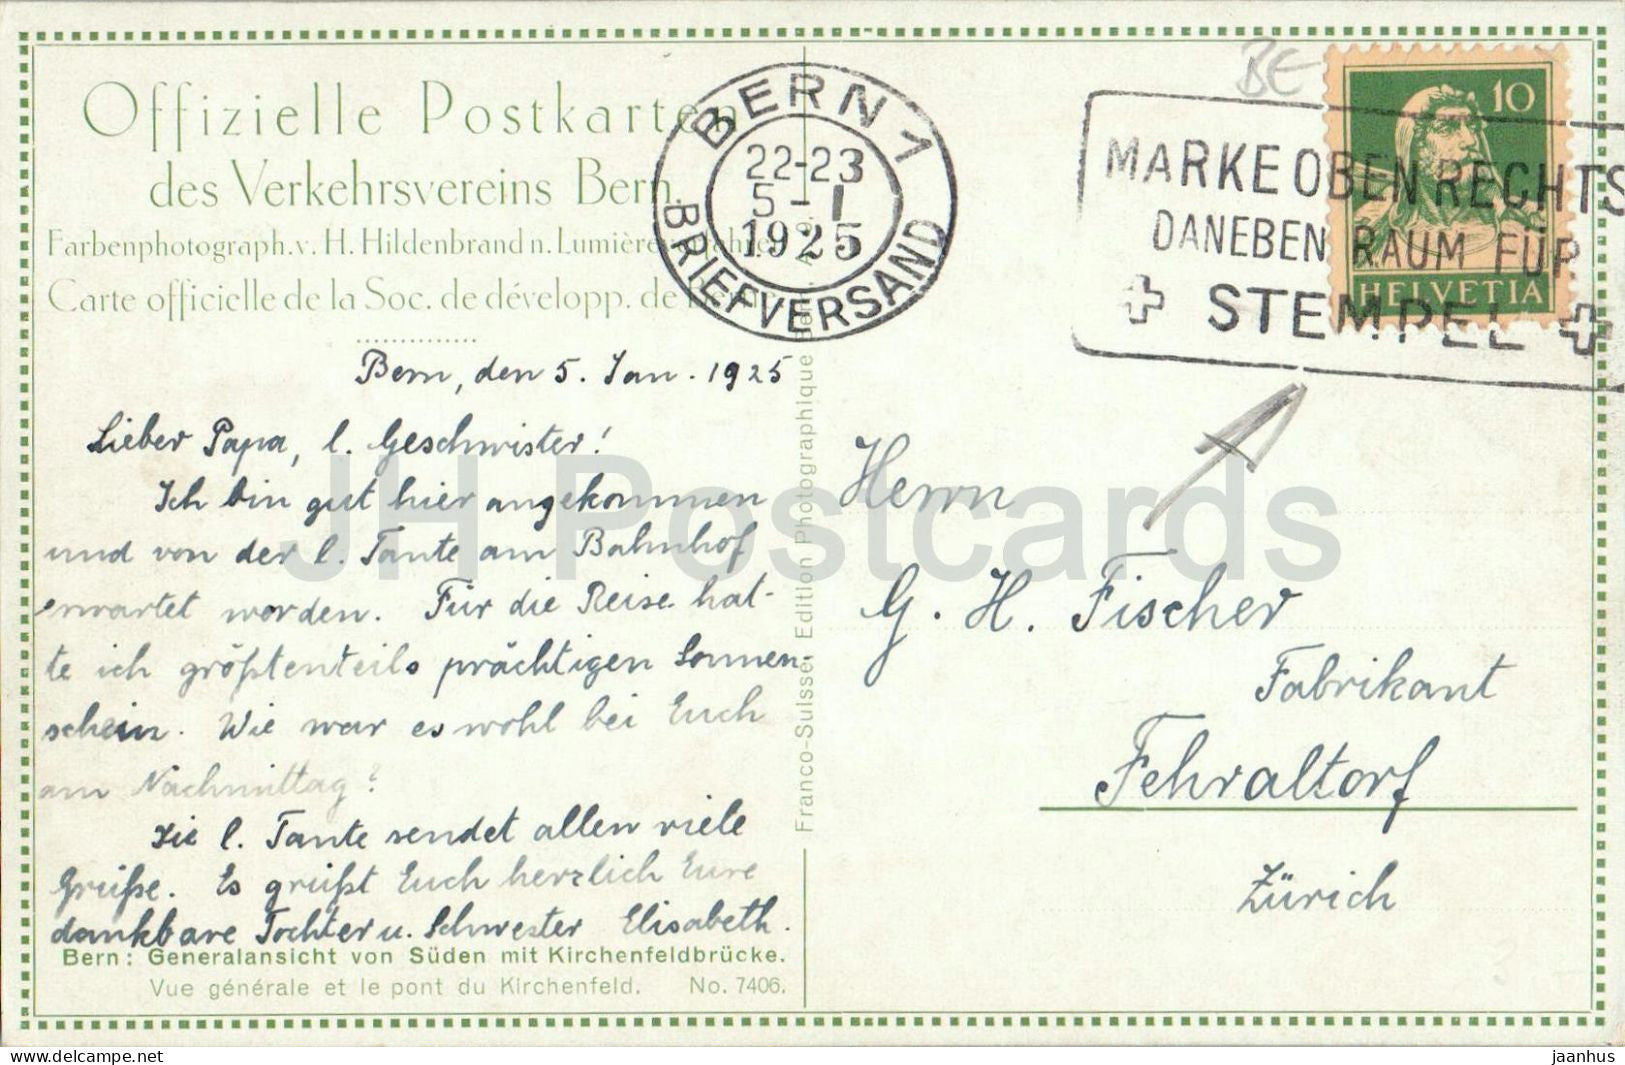 Offizielle Postkarten
des Verkehrsvereins Bern.
Farbenphotograph. v. H. Hildenbrand n. Lumière
Carte officielle de la Soc. de développ. de
BERN 1
22-23
5-I
1925
BRIEFVERSAND
BE
MARKE OBEN RECHTS
DANEBEN RAUM FÜR
STEMPEL
10
HELVETIA
Bern, den 5. Jan. 1925
Lieber Papa, l. Geschwister!
Ich bin gut hier angekommen
und von der l. Tante am Bahnhof
erwartet worden. Für die Reise hat-
te ich größtenteils prächtigen Sonnen-
schein. Wie war es wohl bei Euch
am Nachmittag?
Die l. Tante sendet allen viele
Grüße. Es grüßt Euch herzlich Eure
dankbare Tochter u. Schwester Elisabeth.
Bern: Generalansicht von Süden mit Kirchenfeldbrücke.
Vue générale et le pont du Kirchenfeld. No. 7406.
Franco-Suisse, Edition Photographique
Herrn
G. H. Fischer
Fabrikant
Fehraltorf
Zürich
JH Postcards
www.delcampe.net
jaanhus